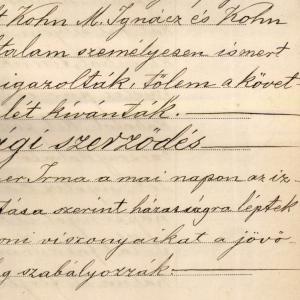 t Kohn M. Ignácz és Kohn
talam személyesen ismert
igazolták, tőlem a követ-
lét kívánták.
gi szerződés
er Irma a mai napon az iz-
tása szerint házasságra léptek
oni viszonyaikat a jövő-
g szabályozzák.